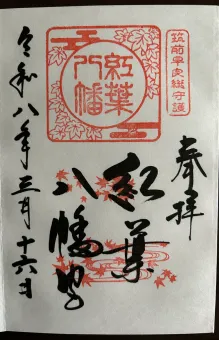 筑前早良総守護
奉拝
紅葉
八幡宮
紅葉
八幡
令和八年三月十六日